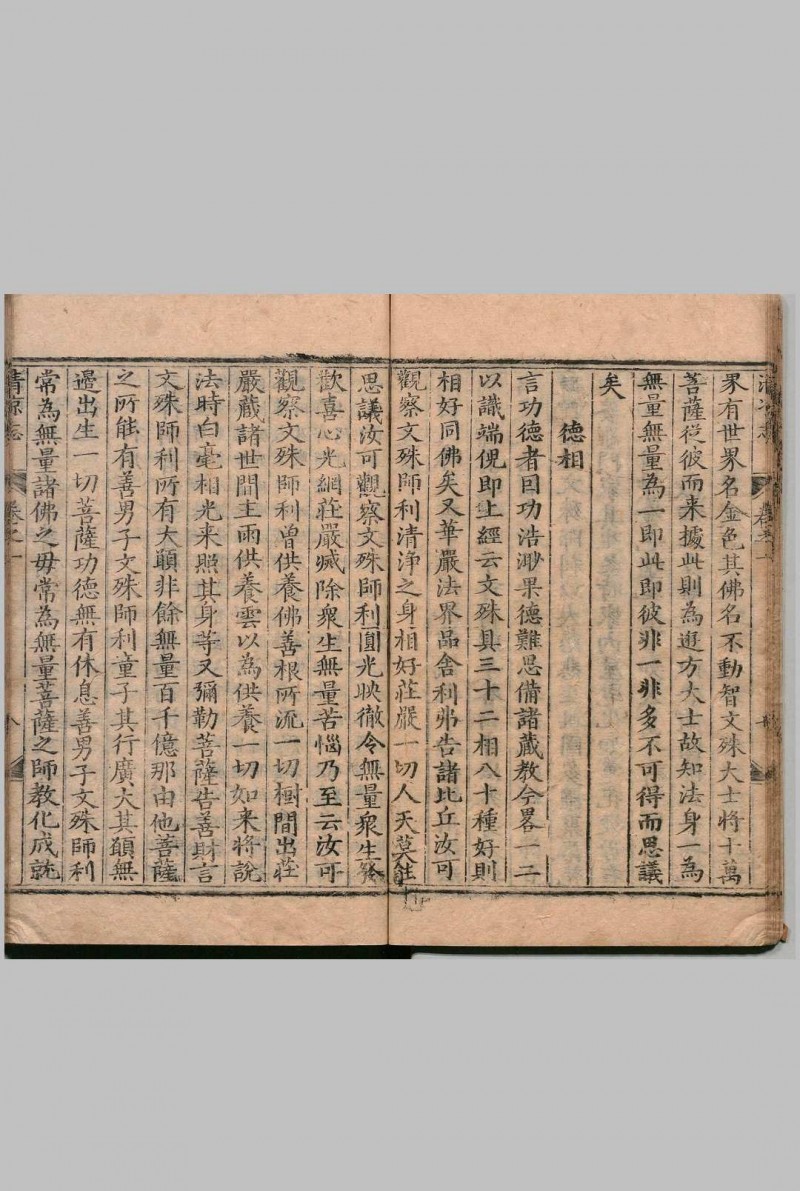 界有世界名金色其佛名不動智文殊大士將十萬
菩薩從彼而来據此則為遊方大士故知法身一為
無量無量為一即此即彼非一非多不可得而思議
矣
德相
言功德者因功浩渺果德難思備諸藏教今畧一二
以識端倪即上經云文殊具三十二相八十種好則
相好同佛矣又華嚴法界品舍利弗告諸比丘汝可
觀察文殊師利清淨之身相好莊嚴一切人天莫能
思議汝可觀察文殊師利圓光映徹令無量衆生發
歡喜心光網莊嚴滅除衆生無量苦惱乃至云汝可
觀察文殊師利曾供養佛善根所流一切樹間出莊
嚴藏諸世間主雨供養雲以為供養一切如来將說
法時白毫相光来照其身等又彌勒菩薩告善財言
文殊師利所有大願非餘無量百千億那由他菩薩
之所能有善男子文殊師利童子其行廣大其願無
邊出生一切菩薩功德無有休息善男子文殊師利
常為無量諸佛之母常為無量菩薩之師教化成就
清凉志 卷之一 八